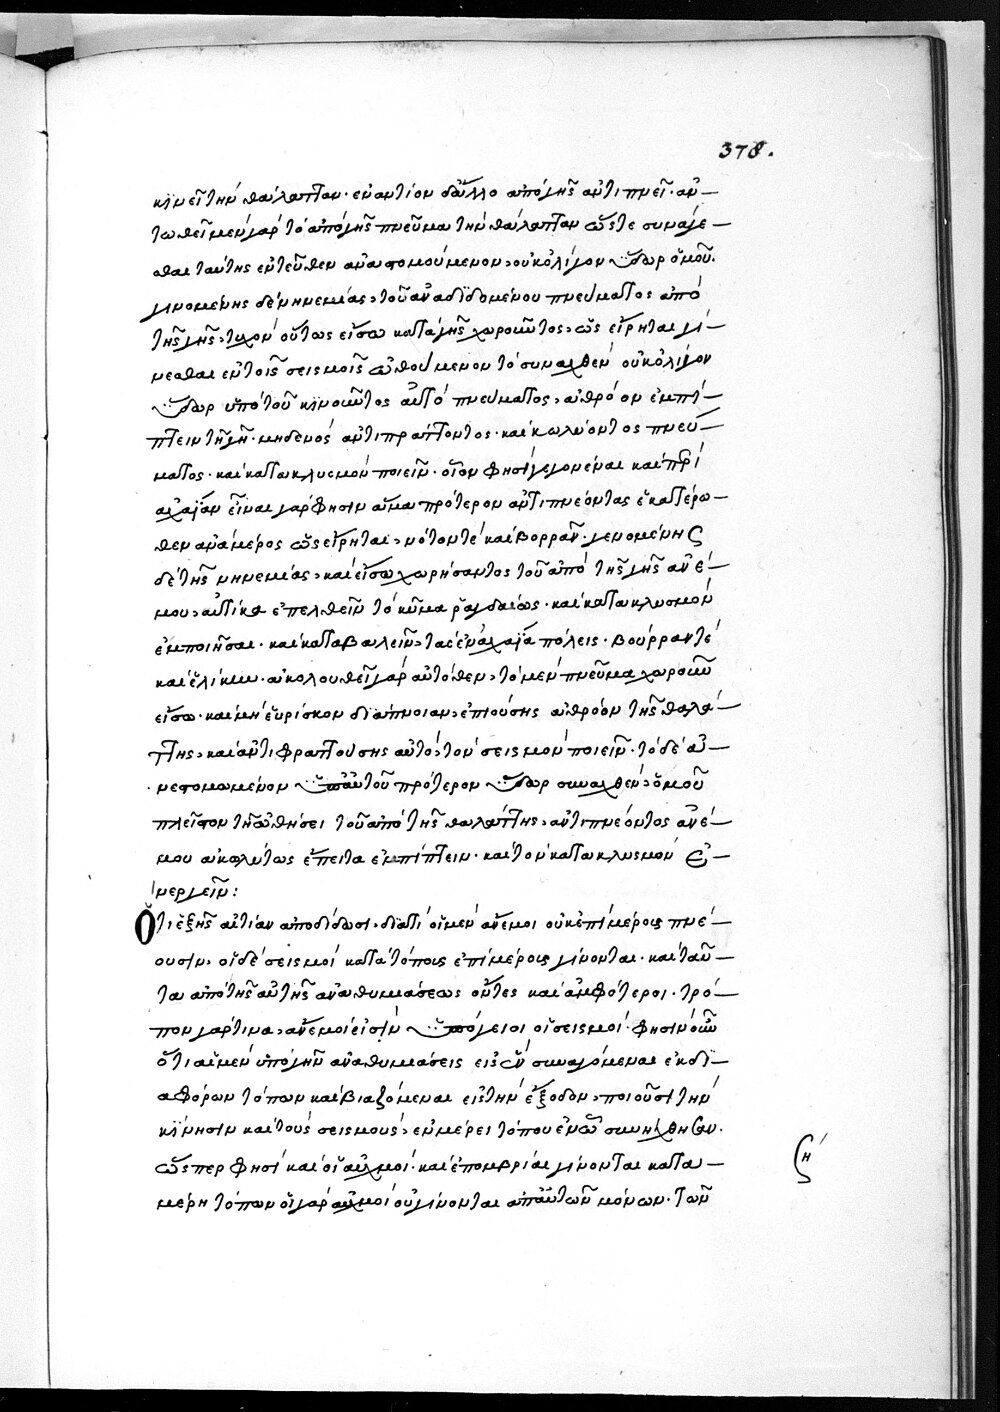 378.
κινεῖ τὴν θάλατταν· ἐναντίον δ' ἄλλο ἀπὸ γῆς ἀντιπνεῖ· ἀν–
τωθεῖ μὲν γὰρ τὸ ἀπὸ γῆς πνεῦμα τὴν θάλατταν ὥστε συνάγε–
σθαι ταύτης ἐντεῦθεν ἀναστομούμενον, οὐκ ὀλίγον ὕδωρ ὁμοῦ.
γινομένης δὲ νηνεμίας, τοῦ ἀναδιδομένου πνεύματος ἀπὸ
τῆς γῆς, τυχὸν οὕτως εἴσω κατὰ γῆς χωροῦντος, ὡς εἴρηται γί–
νεσθαι ἐν τοῖς σεισμοῖς ὠθούμενον τὸ συναχθὲν οὐκ ὀλίγον
ὕδωρ ὑπὸ τοῦ κινοῦντος αὐτὸ πνεύματος, ἀθρόον ἐμπί–
πτειν τῇ γῇ· μηδενὸς ἀντιπράττοντος· καὶ κωλύοντος πνεύ–
ματος· καὶ κατακλυσμὸν ποιεῖν· οἷον φησὶ γεγονέναι καὶ περὶ
ἀχαΐαν εἶναι γὰρ φησὶν ἅμα πρότερον ἀντιπνέοντας ἑκατέρω–
θεν ἀνὰ μέρος ὡς εἴρηται, νότον τὲ καὶ βορρᾶν· γενομένης
δὲ τῆς νηνεμίας, καὶ εἴσω χωρήσαντος τοῦ ἀπὸ τῆς γῆς ἀνέ–
μου, αὐτίκα ἐπελθεῖν τὸ κῦμα ῥαγδαίως· καὶ κατακλυσμὸν
ἐμποιῆσαι· καὶ καταβαλεῖν, τὰς ἐν ἀχαΐα πόλεις· βούρραν τὲ
καὶ ἑλίκην· ἀκολουθεῖ γὰρ αὐτόθεν, τὸ μὲν πνεῦμα χωροῦν
εἴσω· καὶ μὴ εὑρίσκον διάπνοιαν, ἐπιούσης ἀθρόον τῆς θαλά–
ττης, καὶ ἀντιφραττούσης αὐτό, τὸν σεισμὸν ποιεῖν· τὸ δὲ ἀ–
νεστομωμένον ὑπ' αὐτοῦ πρότερον ὕδωρ συναχθέν, ὁμοῦ
πλεῖστον τῇ ὠθήσει τοῦ ἀπὸ τῆς θαλάττης, ἀντιπνέοντος ἀνέ–
μου ἀκωλύτως ἔπειτα ἐμπίπτειν· καὶ τὸν κατακλυσμὸν ἐ–
νεργεῖν:
Ὅτι ἑξῆς αἰτίαν ἀποδίδωσι, διατί οἱ μὲν ἄνεμοι οὐκ ἐπιμέρους πνέ–
ουσιν, οἱ δὲ σεισμοὶ κατὰ τόπους ἐπιμέρους γίνονται· καὶ ταῦ–
τα ἀπὸ τῆς αὐτῆς ἀναθυμιάσεως ὄντες καὶ ἀμφότεροι· τρό–
πον γάρ τινα, ἄνεμοί εἰσιν ὑπόγειοι οἱ σεισμοί· φησὶν οὖν
ὅτι αἱ μὲν ὑπὸ γῆν ἀναθυμιάσεις εἰς ἓν συναγόμεναι ἐκ δι–
αφόρων τόπων καὶ βιαζόμεναι εἰς τὴν ἔξοδον, ποιοῦσι τὴν
κίνησιν καὶ τοὺς σεισμούς, ἐν μέρει τόπου ἐν ᾧ συνήχθησαν.
ὥσπερ φησὶ καὶ οἱ αὐχμοὶ· καὶ ἐπομβρίαι γίνονται κατὰ–
μέρη τόπων οἱ γὰρ αὐχμοὶ οὐ γίνονται ἀπ' αὐτῶν μόνων· τῶν